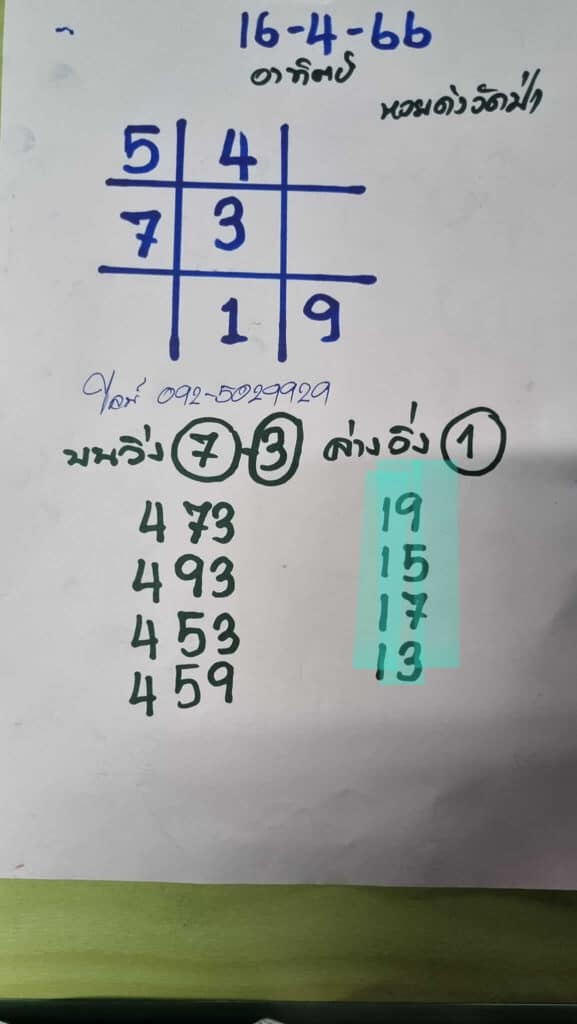 16-4-66
อาทิตย์
5 4
7 3
1 9
ไลน์ 092-5029929
บนวิ่ง 7-3 ล่างวิ่ง 1
473 19
493 15
453 17
459 13